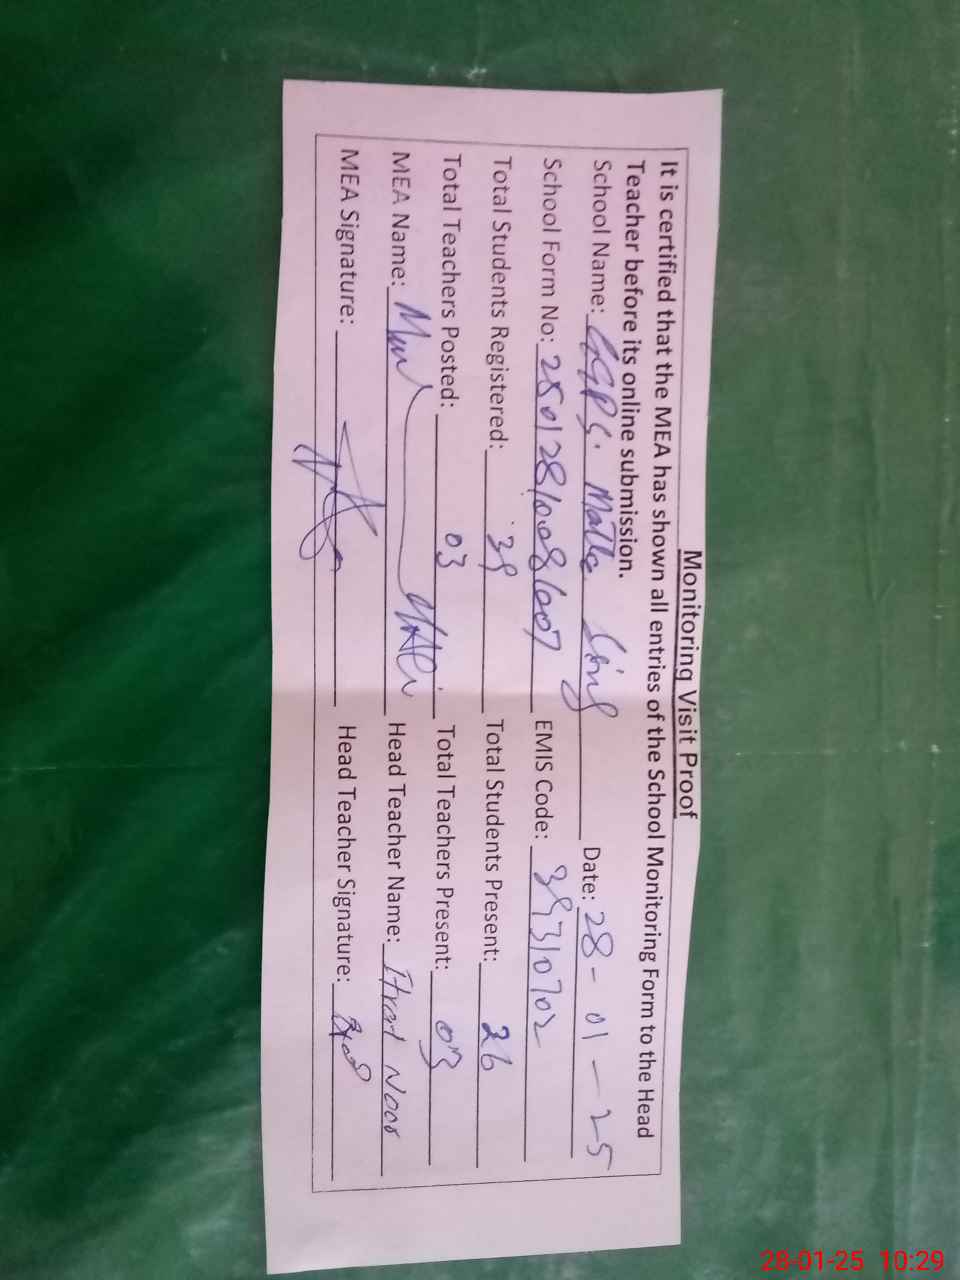 Monitoring Visit Proof
It is certified that the MEA has shown all entries of the School Monitoring Form to the Head
Teacher before its online submission.
School Name: GGPS. Malka Date: 28-01-25
School Form No: 280128/008/007 EMIS Code: 39310702
Total Students Registered: 39 Total Students Present: 26
Total Teachers Posted: 03 Total Teachers Present: 03
MEA Name: Head Teacher Name: Itrat Noor
MEA Signature: Head Teacher Signature:
28-01-25 10:29